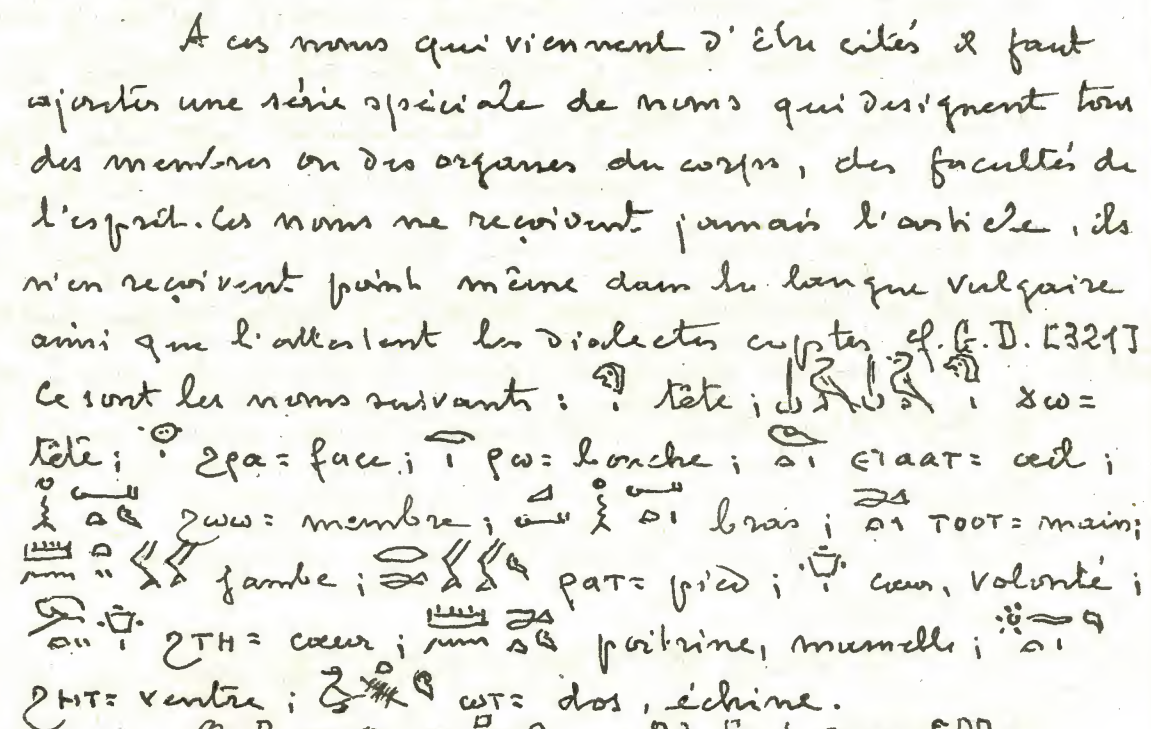 A ces noms qui viennent d'être cités il faut
ajouter une série spéciale de noms qui designent tous
des membres ou des organes du corps, des facultés de
l'esprit. Ces noms ne reçoivent jamais l'article, ils
n'en reçoivent point même dans la langue vulgaire
ainsi que l'attestent les dialectes coptes cf. G.D. [321]
Ce sont les noms suivants : tête ; ϫω=
tête ; ϩⲣⲁ= face ; ⲣⲱ= bouche ; ⲉⲓⲁⲁⲧ= œil ;
ϩⲱⲱ= membre ; bras ; ⲧⲟⲟⲧ= main;
jambe ; ⲣⲁⲧ= pied ; cœur, volonté ;
ϩⲧⲏ= cœur ; poitrine, mamelle ;
ϩⲏⲧ= ventre ; ⲱⲧ= dos, échine.